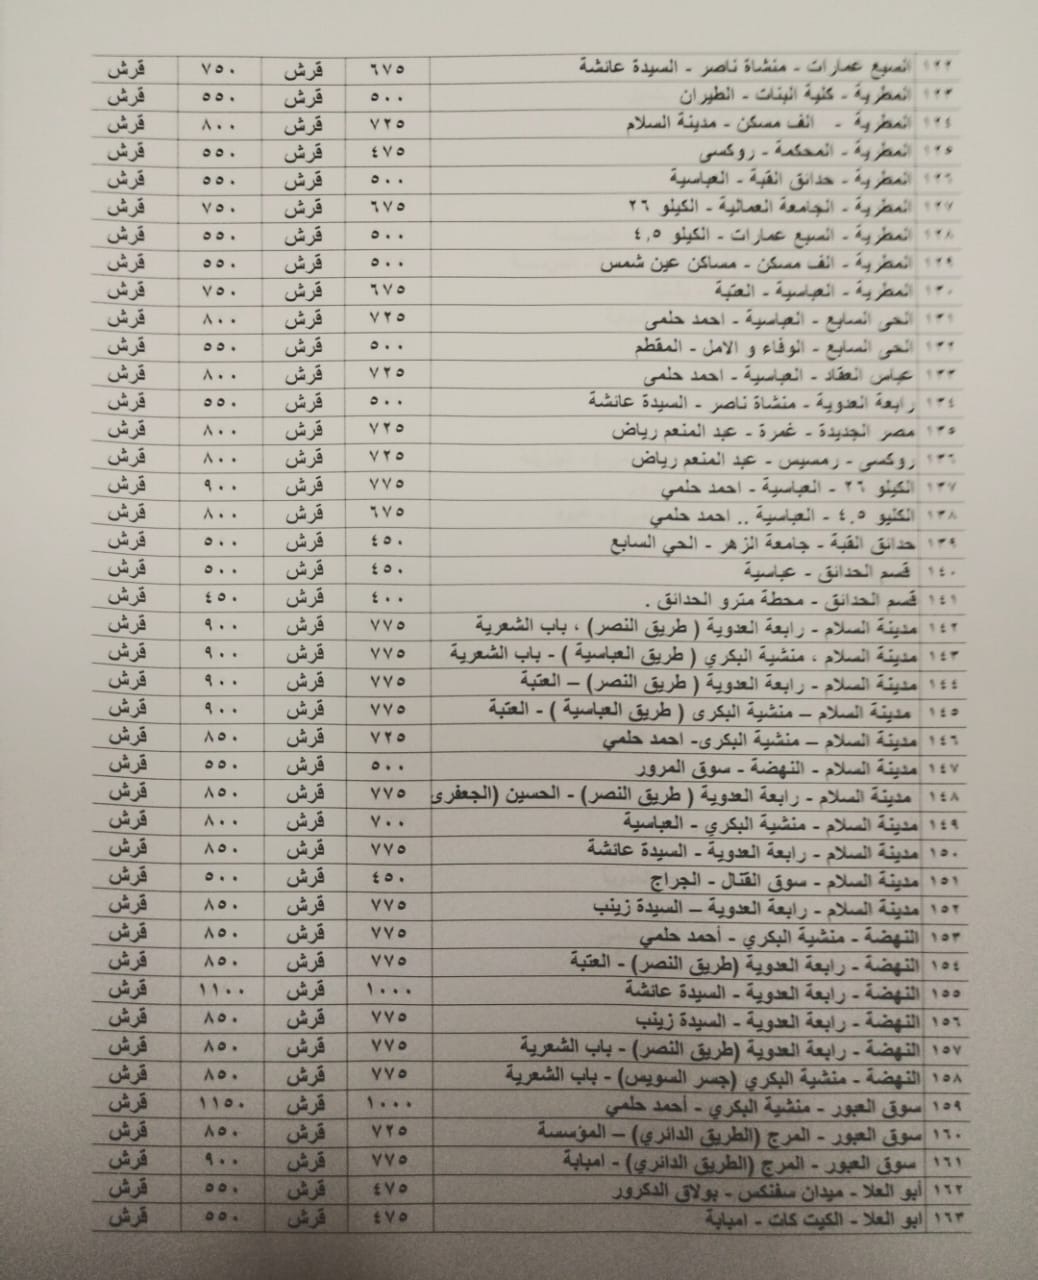 ١٢٢ السبع عمارات - منشاة ناصر - السيدة عائشة ٦٧٥ قرش ٧٥٠ قرش
١٢٣ المطرية - كلية البنات - الطيران ٥٠٠ قرش ٥٥٠ قرش
١٢٤ المطرية - الف مسكن - مدينة السلام ٧٢٥ قرش ٨٠٠ قرش
١٢٥ المطرية - المحكمة - روكسى ٤٧٥ قرش ٥٥٠ قرش
١٢٦ المطرية - حدائق القبة - العباسية ٥٠٠ قرش ٥٥٠ قرش
١٢٧ المطرية - الجامعة العمالية - الكيلو ٢٦ ٦٧٥ قرش ٧٥٠ قرش
١٢٨ المطرية - السبع عمارات - الكيلو ٤,٥ ٥٠٠ قرش ٥٥٠ قرش
١٢٩ المطرية - الف مسكن - مساكن عين شمس ٥٠٠ قرش ٥٥٠ قرش
١٣٠ المطرية - العباسية - العتبة ٦٧٥ قرش ٧٥٠ قرش
١٣١ الحى السابع - العباسية - احمد حلمى ٧٢٥ قرش ٨٠٠ قرش
١٣٢ الحى السابع - الوفاء و الامل - المقطم ٥٠٠ قرش ٥٥٠ قرش
١٣٣ عباس العقاد - العباسية - احمد حلمى ٧٢٥ قرش ٨٠٠ قرش
١٣٤ رابعة العدوية - منشاة ناصر - السيدة عائشة ٥٠٠ قرش ٥٥٠ قرش
١٣٥ مصر الجديدة - غمرة - عبد المنعم رياض ٧٢٥ قرش ٨٠٠ قرش
١٣٦ روكسى - رمسيس - عبد المنعم رياض ٧٢٥ قرش ٨٠٠ قرش
١٣٧ الكيلو ٢٦ - العباسية - احمد حلمي ٧٧٥ قرش ٩٠٠ قرش
١٣٨ الكليو ٤,٥ - العباسية .. احمد حلمي ٦٧٥ قرش ٨٠٠ قرش
١٣٩ حدائق القبة - جامعة الزهر - الحي السابع ٤٥٠ قرش ٥٠٠ قرش
١٤٠ قسم الحدائق - عباسية ٤٥٠ قرش ٥٠٠ قرش
١٤١ قسم الحدائق - محطة مترو الحدائق . ٤٠٠ قرش ٤٥٠ قرش
١٤٢ مدينة السلام - رابعة العدوية ( طريق النصر) ، باب الشعرية ٧٧٥ قرش ٩٠٠ قرش
١٤٣ مدينة السلام ، منشية البكري ( طريق العباسية ) - باب الشعرية ٧٧٥ قرش ٩٠٠ قرش
١٤٤ مدينة السلام - رابعة العدوية ( طريق النصر) – العتبة ٧٧٥ قرش ٩٠٠ قرش
١٤٥ مدينة السلام – منشية البكرى ( طريق العباسية ) - العتبة ٧٧٥ قرش ٩٠٠ قرش
١٤٦ مدينة السلام – منشية البكرى- احمد حلمي ٧٢٥ قرش ٨٥٠ قرش
١٤٧ مدينة السلام - النهضة - سوق المرور ٥٠٠ قرش ٥٥٠ قرش
١٤٨ مدينة السلام - رابعة العدوية ( طريق النصر) - الحسين (الجعفرى ٧٧٥ قرش ٨٥٠ قرش
١٤٩ مدينة السلام - منشية البكري - العباسية ٧٠٠ قرش ٨٠٠ قرش
١٥٠ مدينة السلام - رابعة العدوية - السيدة عائشة ٧٧٥ قرش ٨٥٠ قرش
١٥١ مدينة السلام - سوق القتال - الجراج ٤٥٠ قرش ٥٠٠ قرش
١٥٢ مدينة السلام - رابعة العدوية – السيدة زينب ٧٧٥ قرش ٨٥٠ قرش
١٥٣ النهضة - منشية البكري - أحمد حلمي ٧٧٥ قرش ٨٥٠ قرش
١٥٤ النهضة - رابعة العدوية (طريق النصر) - العتبة ٧٧٥ قرش ٨٥٠ قرش
١٥٥ النهضة - رابعة العدوية - السيدة عائشة ١٠٠٠ قرش ١١٠٠ قرش
١٥٦ النهضة - رابعة العدوية - السيدة زينب ٧٧٥ قرش ٨٥٠ قرش
١٥٧ النهضة - رابعة العدوية (طريق النصر) - باب الشعرية ٧٧٥ قرش ٨٥٠ قرش
١٥٨ النهضة - منشية البكري (جسر السويس) - باب الشعرية ٧٧٥ قرش ٨٥٠ قرش
١٥٩ سوق العبور - منشية البكري - أحمد حلمي ١٠٠٠ قرش ١١٥٠ قرش
١٦٠ سوق العبور - المرج (الطريق الدائري) – المؤسسة ٧٢٥ قرش ٨٥٠ قرش
١٦١ سوق العبور - المرج (الطريق الدائري) - امبابة ٧٧٥ قرش ٩٠٠ قرش
١٦٢ أبو العلا - ميدان سفنكس - بولاق الدكرور ٤٧٥ قرش ٥٥٠ قرش
١٦٣ ابو العلا - الكيت كات - امبابة ٤٧٥ قرش ٥٥٠ قرش